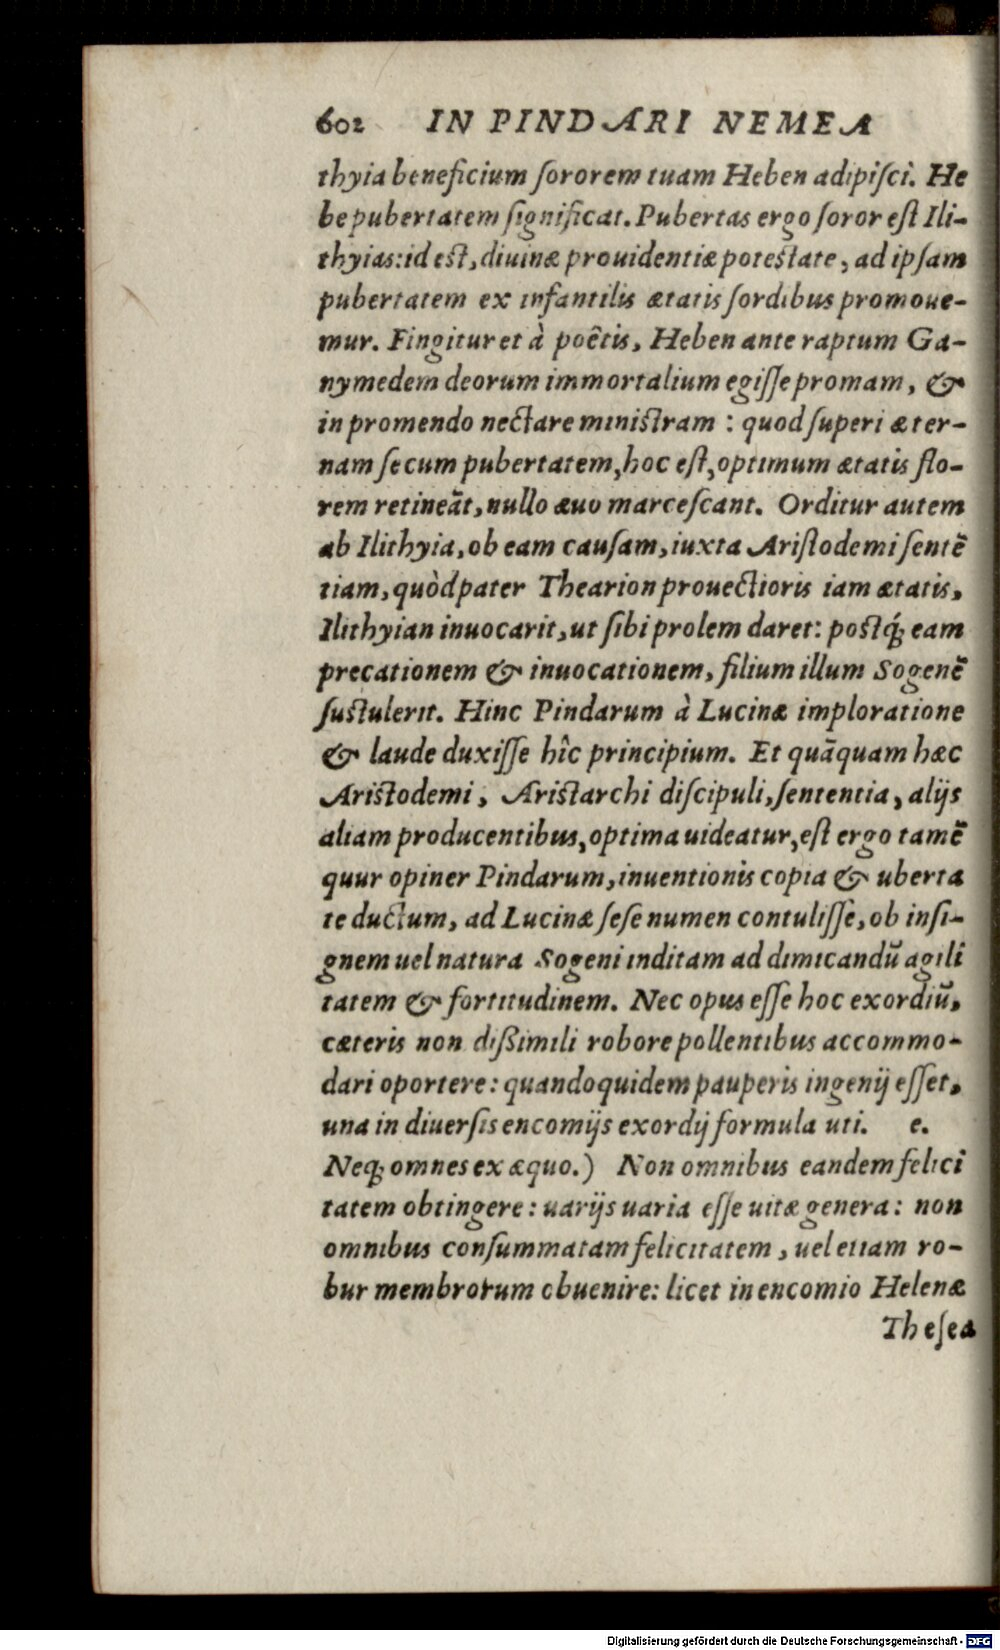 602 IN PINDARI NEMEA
thyia beneficium ſororem tuam Heben adipiſci. He
be pubertatem ſignificat. Pubertas ergo ſoror eſt Ili-
thyias: id eſt, diuinæ prouidentiæ poteſtate, ad ipſam
pubertatem ex infantilis ætatis ſordibus promoue-
mur. Fingitur et à poêtis, Heben ante raptum Ga-
nymedem deorum immortalium egiſſe promam, &
in promendo nectare miniſtram : quod ſuperi æter-
nam ſecum pubertatem, hoc eſt, optimum ætatis flo-
rem retineãt, nullo æuo marceſcant. Orditur autem
ab Ilithyia, ob eam cauſam, iuxta Ariſtodemi ſentẽ
tiam, quòd pater Thearion prouectioris iam ætatis,
Ilithyian inuocarit, ut ſibi prolem daret: poſtq́ꝫ eam
precationem & inuocationem, filium illum Sogenẽ
ſuſtulerit. Hinc Pindarum à Lucinæ imploratione
& laude duxiſſe hîc principium. Et quãquam hæc
Ariſtodemi, Ariſtarchi diſcipuli, ſententia, alijs
aliam producentibus, optima uideatur, eſt ergo tamẽ
quur opiner Pindarum, inuentionis copia & uberta
te ductum, ad Lucinæ ſeſe numen contuliſſe, ob inſi-
gnem uel natura Sogeni inditam ad dimicandũ agili
tatem & fortitudinem. Nec opus eſſe hoc exordiũ,
cæteris non dißimili robore pollentibus accommo-
dari oportere: quandoquidem pauperis ingenij eſſet,
una in diuerſis encomijs exordij formula uti. e.
Neqꝫ omnes ex æquo.) Non omnibus eandem felici
tatem obtingere: uarijs uaria eſſe uitæ genera: non
omnibus conſummatam felicitatem, uel etiam ro-
bur membrorum obuenire: licet in encomio Helenæ
Theſea
Digitalisierung gefördert durch die Deutsche Forschungsgemeinschaft - DFG